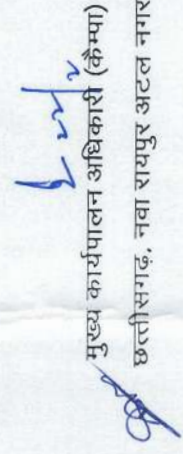 मुख्य कार्यपालन अधिकारी (कैम्पा)
छत्तीसगढ़, नवा रायपुर अटल नगर